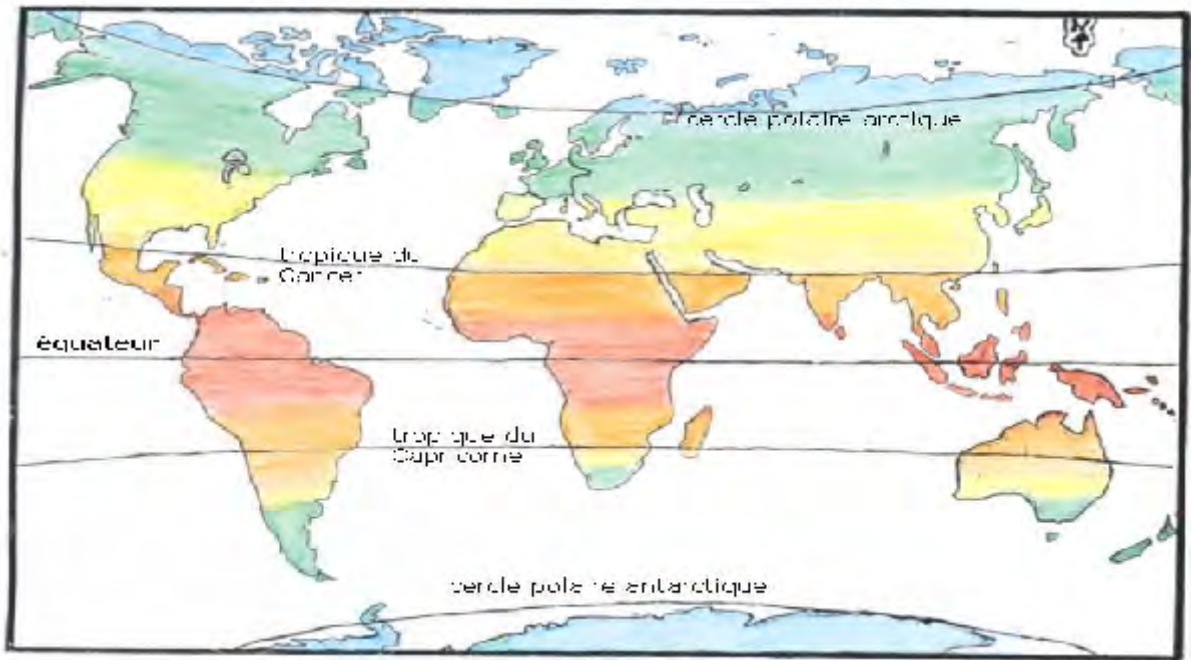 cercle polaire arctique
tropique du
Cancer
équateur
tropique du
Capricorne
cercle polaire antarctique